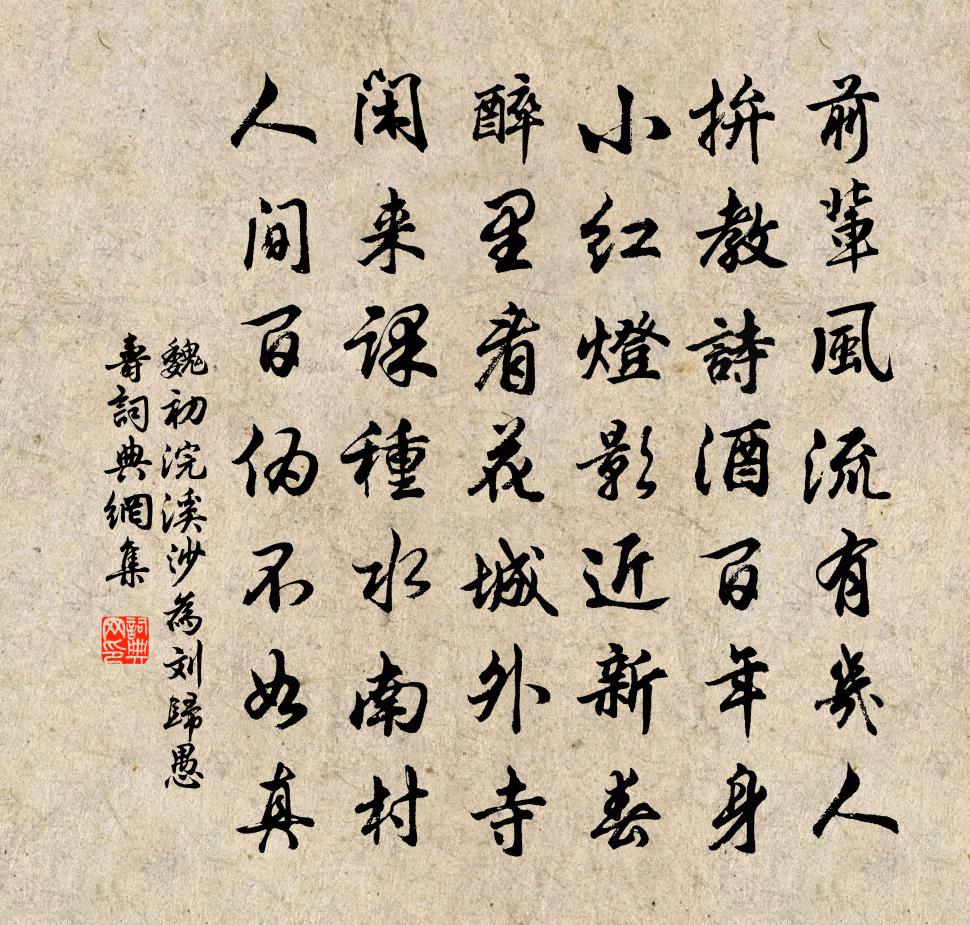 前輩風流有幾人
拚教詩酒百年身
小红燈影近新春
醉里看花城外寺
闲来課種水南村
人间百偽不如真
魏初浣溪沙為刘歸愚
壽詞典網集
詞典网印